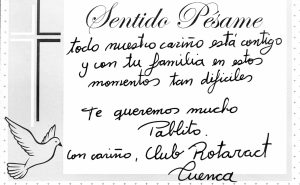 Sentido Pésame
todo nuestro cariño está contigo
y con tu familia en estos
momentos tan dificiles
Te queremos mucho
Pablito.
con cariño, Club Rotaract
Cuenca